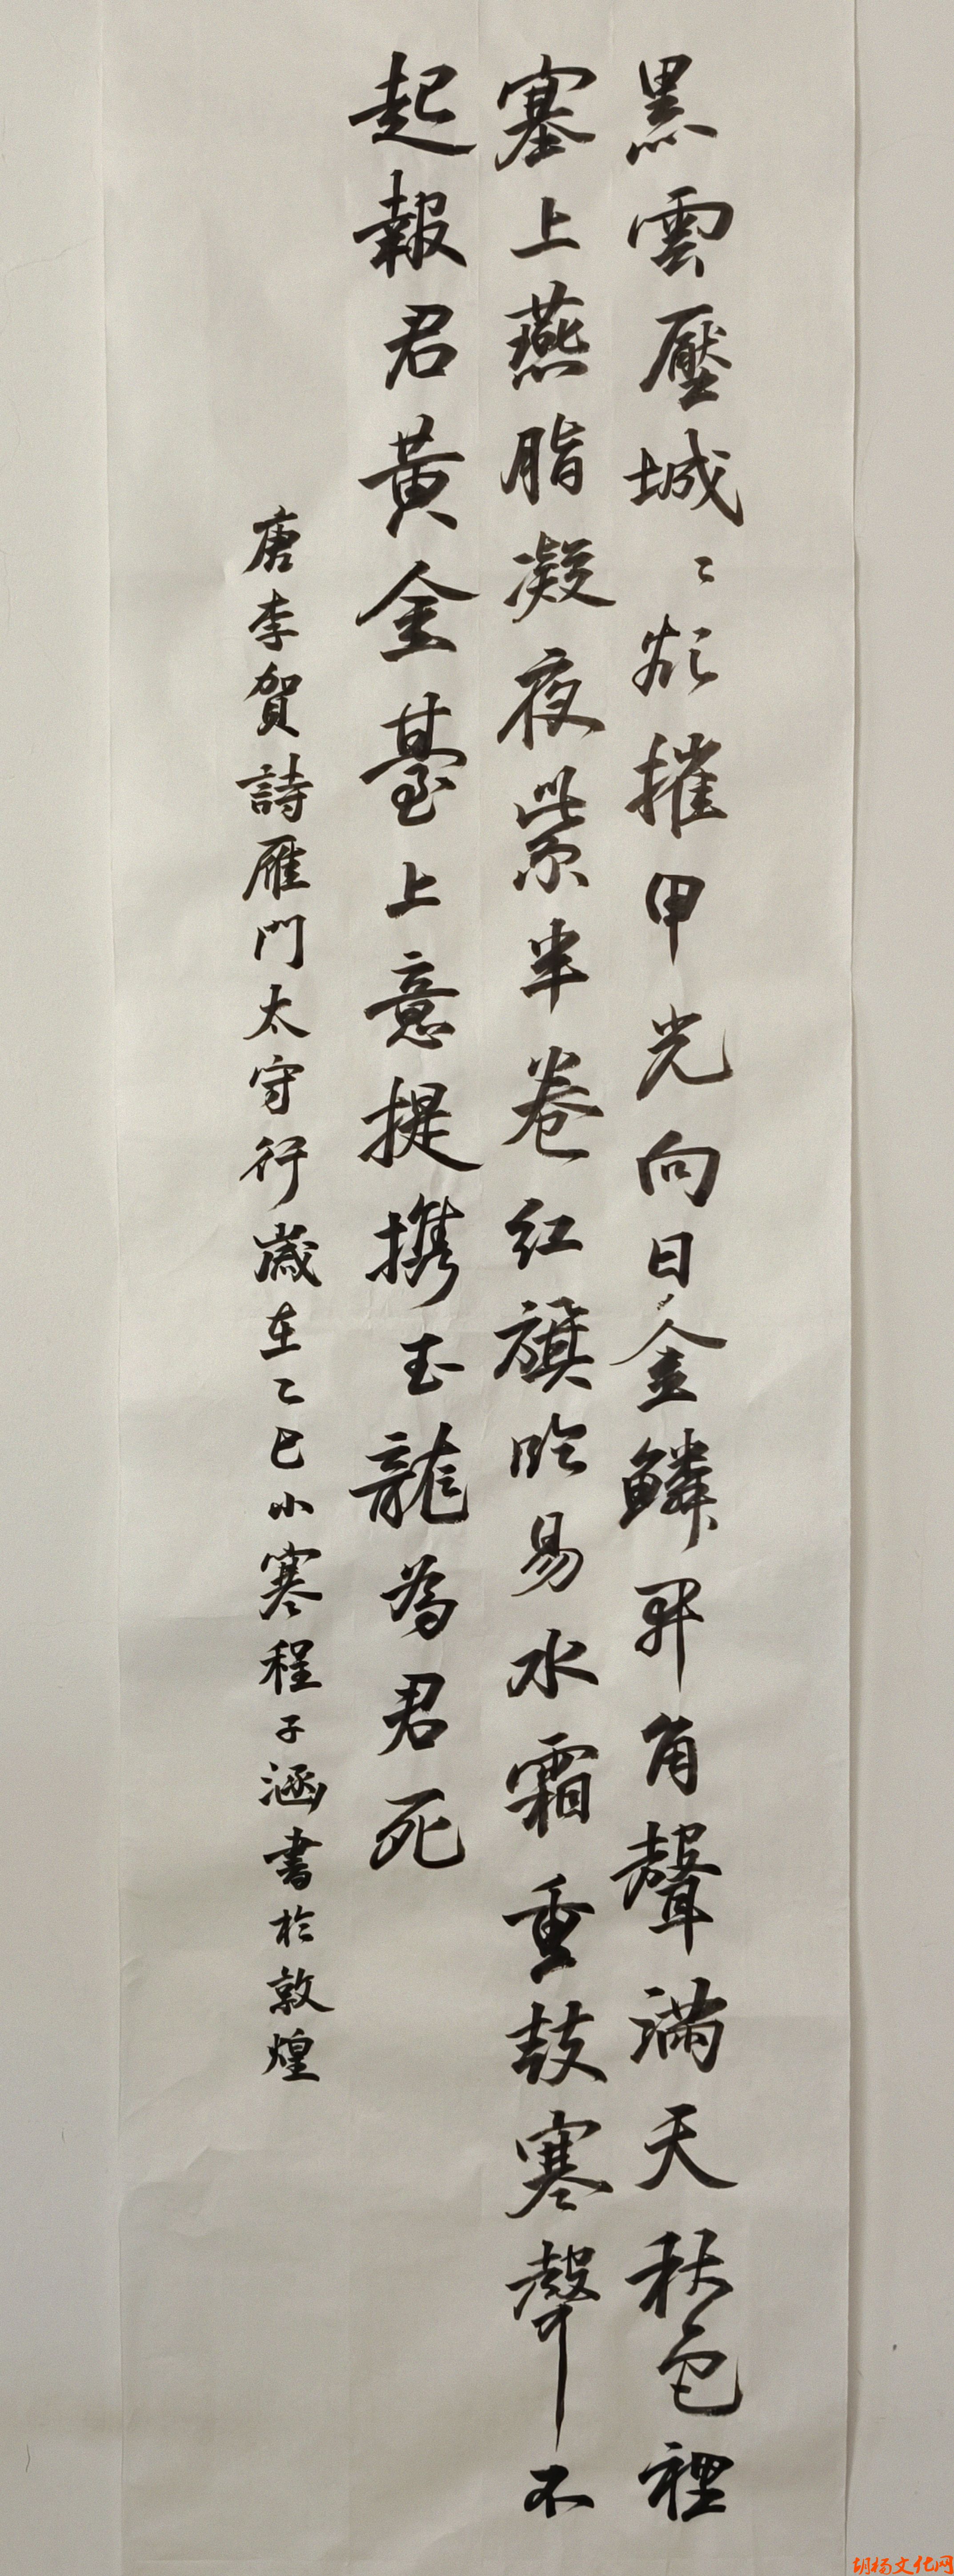 黑雲壓城〻欲摧甲光向日金鱗開角聲滿天秋色裡
塞上燕脂凝夜紫半卷紅旗臨易水霜重鼓寒聲不
起報君黃金臺上意提携玉龍為君死
唐李賀詩雁門太守行歲在乙巳小寒程子涵書於敦煌
胡杨文化网